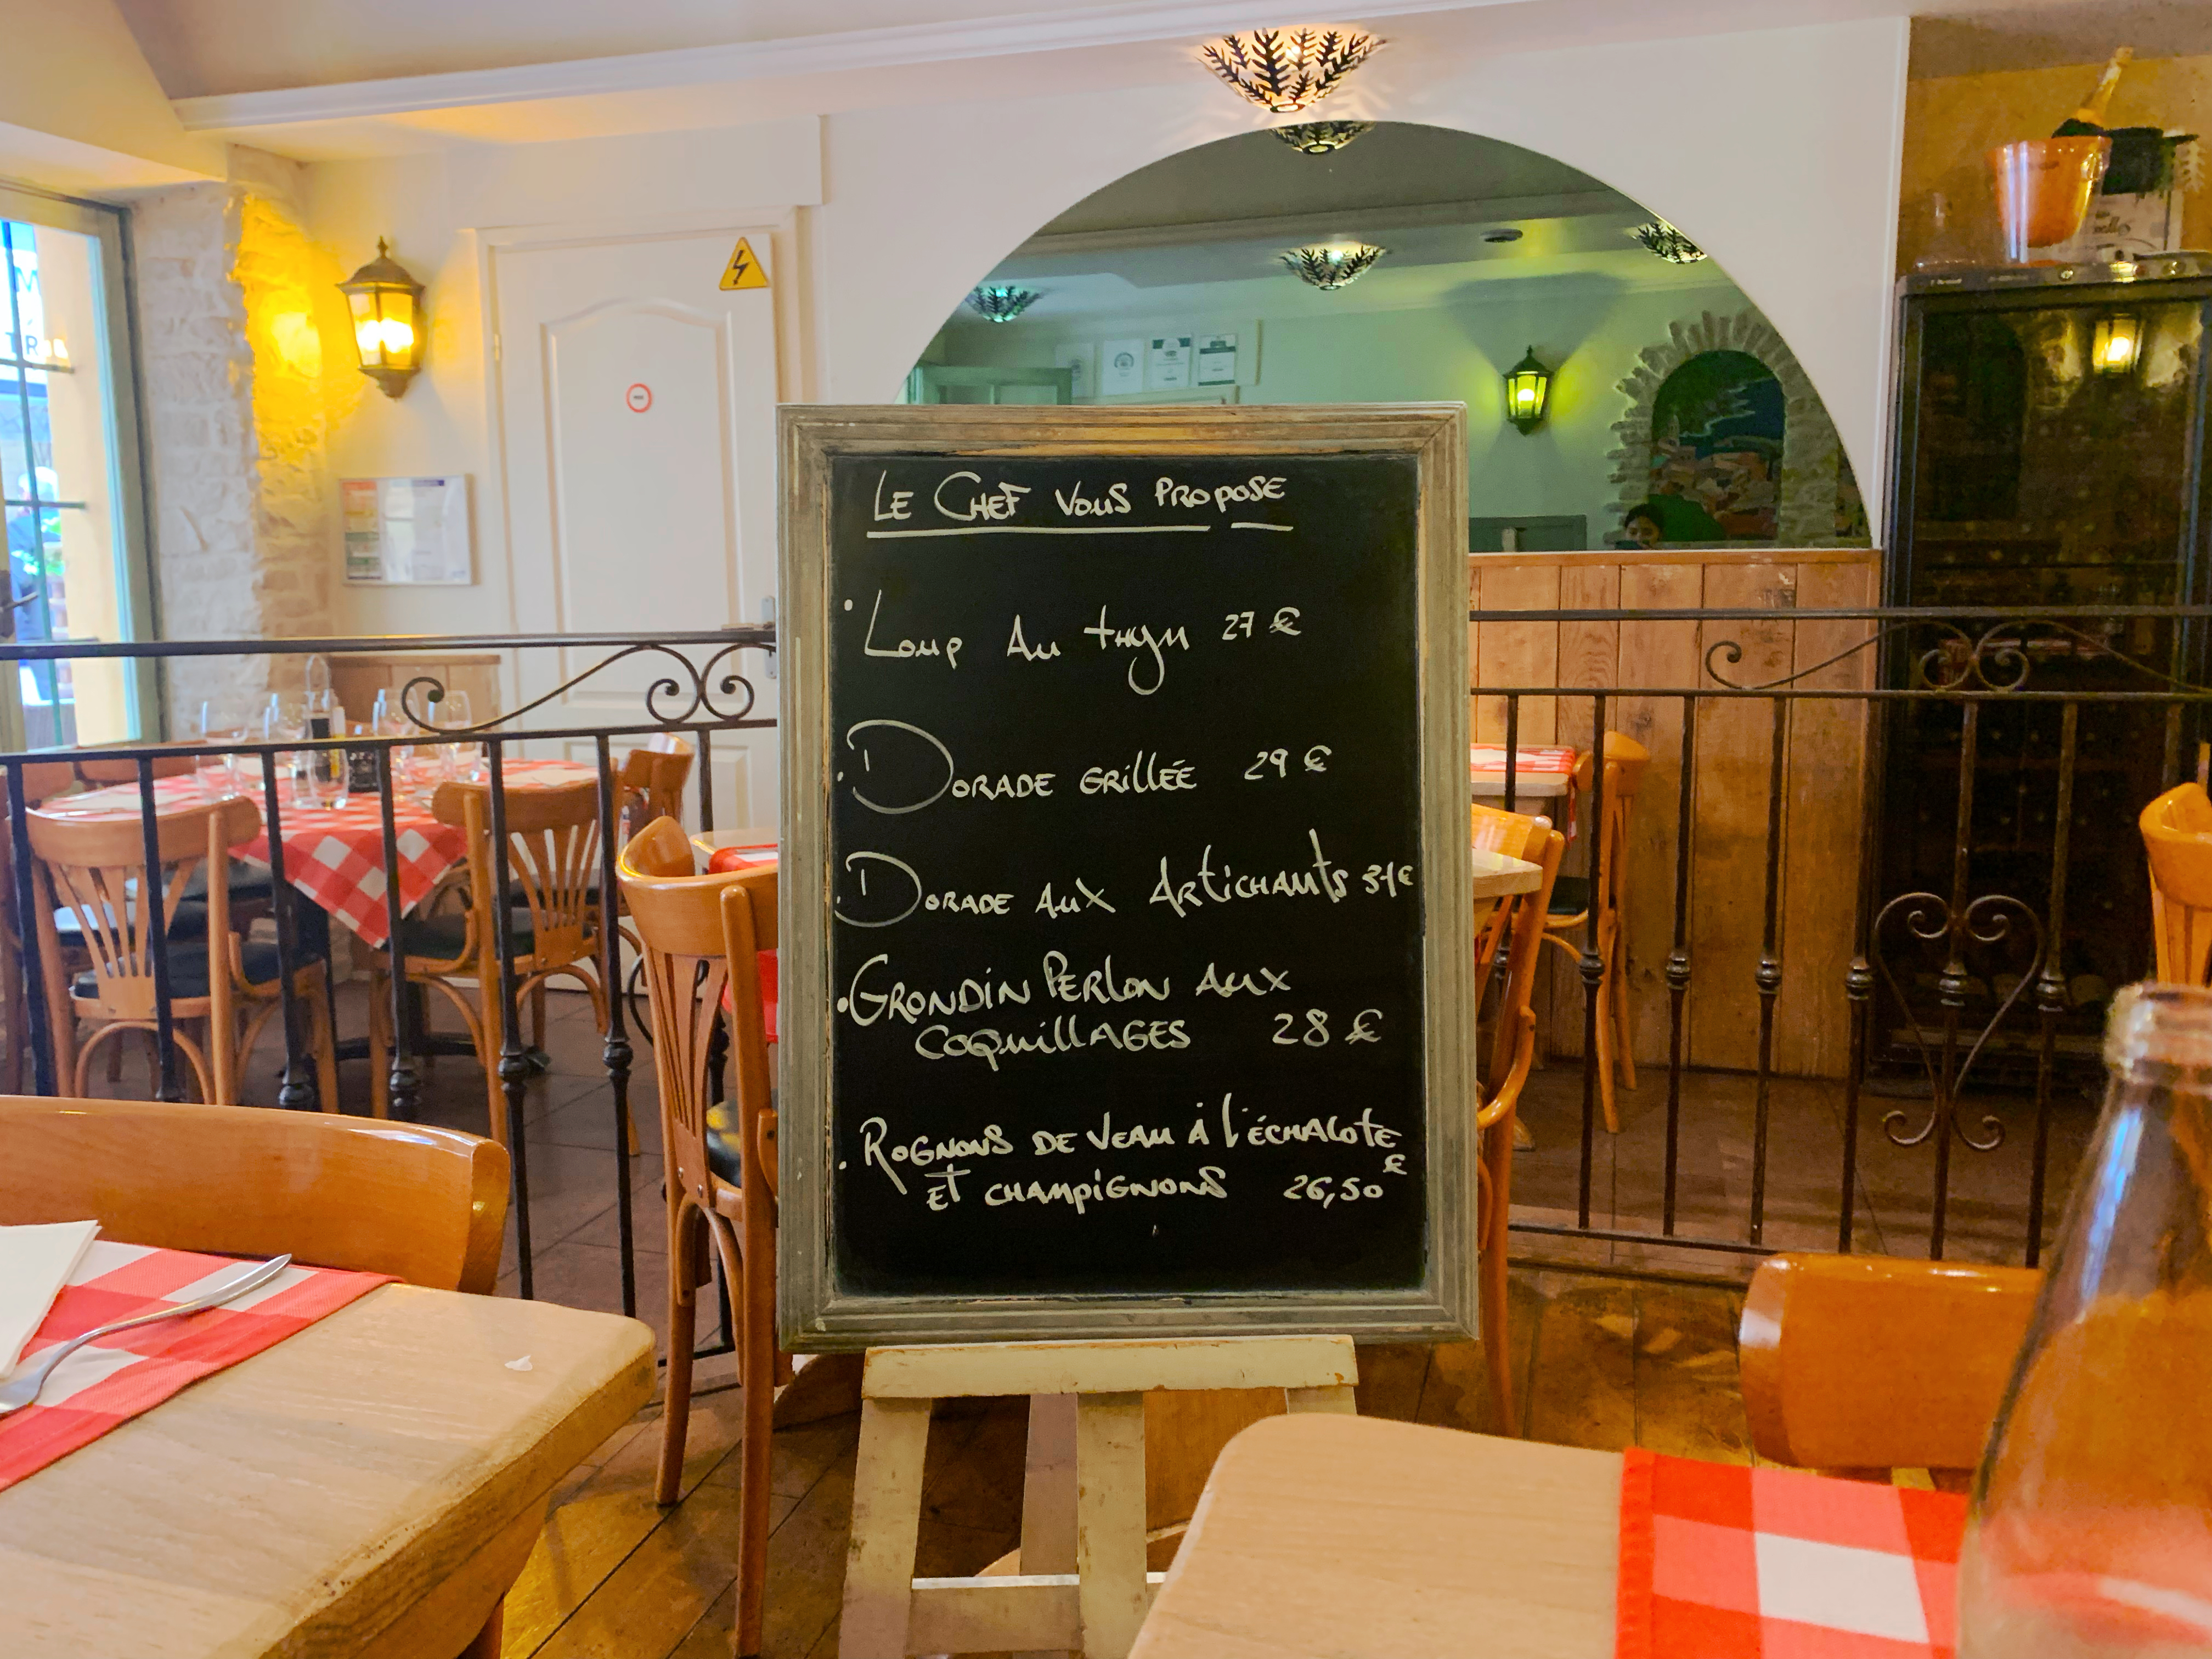 LE CHEF VOUS PROPOSE
· Loup Au thym 27 €
· DORADE GRILLÉE 29 €
· DORADE AUX ARTICHAUTS 31€
· GRONDIN PERLON AUX
COQUILLAGES 28 €
· ROGNONS DE VEAU À L'ÉCHALOTE
ET CHAMPIGNONS 26,50 €